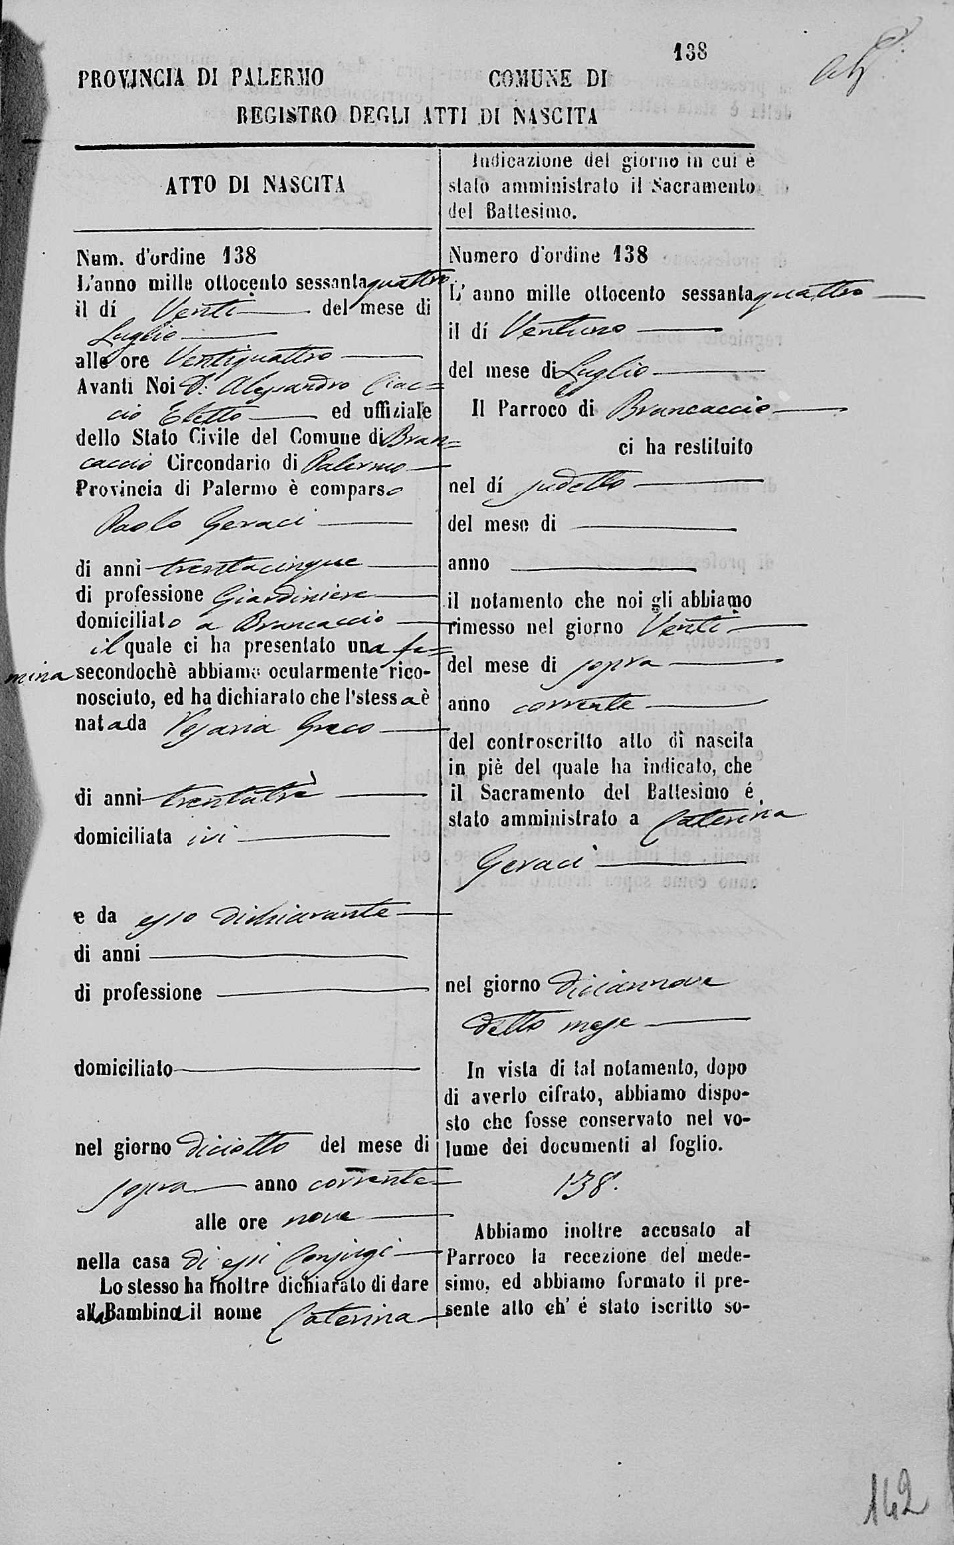 138
PROVINCIA DI PALERMO COMUNE DI
REGISTRO DEGLI ATTI DI NASCITA
ATTO DI NASCITA
Num. d'ordine 138
L'anno mille ottocento sessanta quattro
il dí Venti del mese di
Luglio
alle ore Ventiquattro
Avanti Noi D. Alessandro Ciac=
cio Eletto ed uffiziale
dello Stato Civile del Comune di Bran=
caccio Circondario di Palermo
Provincia di Palermo è comparso
Paolo Geraci
di anni trentacinque
di professione Giardiniere
domiciliato a Brancaccio
il quale ci ha presentato una fe=
mina secondochè abbiamo ocularmente rico-
nosciuto, ed ha dichiarato che l'stessa è
nata da Rosaria Greco
di anni trentatrè
domiciliata ivi
e da esso dichiarante
di anni
di professione
domiciliato
nel giorno diciotto del mese di
sopra anno corrente
alle ore nove
nella casa di essi Conjugi
Lo stesso ha inoltre dichiarato di dare
alla Bambina il nome Caterina
Indicazione del giorno in cui è
stato amministrato il Sacramento
del Battesimo.
Numero d'ordine 138
L' anno mille ottocento sessanta quattro
il dí Ventuno
del mese di Luglio
Il Parroco di Brancaccio
ci ha restituito
nel dí sudetto
del mese di
anno
il notamento che noi gli abbiamo
rimesso nel giorno Venti
del mese di sopra
anno corrente
del controscritto atto di nascita
in piè del quale ha indicato, che
il Sacramento del Battesimo é
stato amministrato a Caterina
Geraci
nel giorno diciannove
detto mese
In vista di tal notamento, dopo
di averlo cifrato, abbiamo dispo-
sto che fosse conservato nel vo-
lume dei documenti al foglio.
138.
Abbiamo inoltre accusato al
Parroco la recezione del mede-
simo, ed abbiamo formato il pre-
sente atto ch' é stato iscritto so-
142